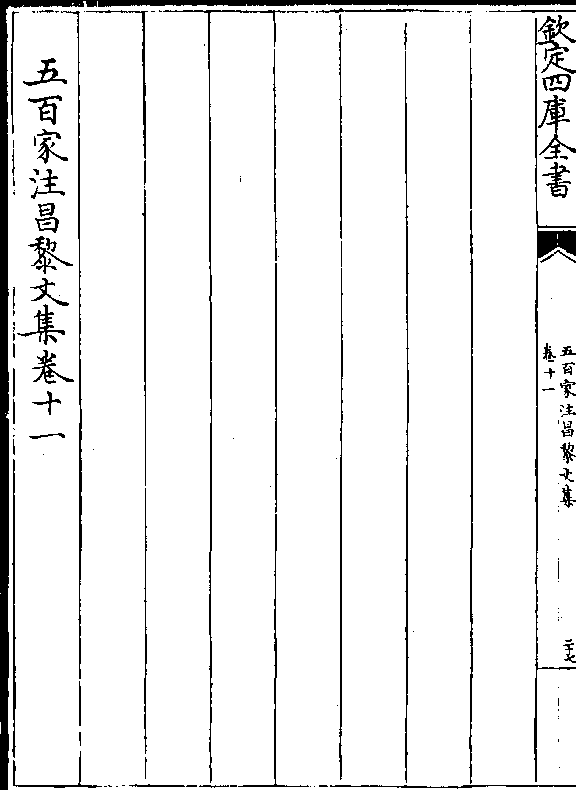 欽定四庫全書
五百家注昌黎文集
卷十一
二十七
五百家注昌黎文集卷十一